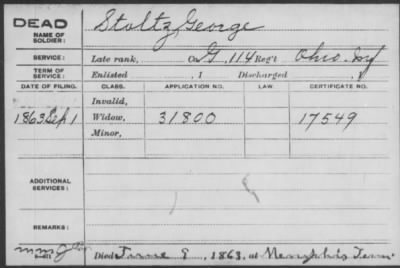 DEAD Stoltz, George
NAME OF
SOLDIER:
SERVICE: Late rank, Co. G, 114 Reg't Ohio Inf
TERM OF
SERVICE: Enlisted , 1 Discharged , 1
DATE OF FILING. CLASS. APPLICATION NO. LAW. CERTIFICATE NO.
Invalid,
1863 Sep 1 Widow, 31800 17549
Minor,
ADDITIONAL
SERVICES:
REMARKS:
Died June , 1863, at Memphis Tenn.